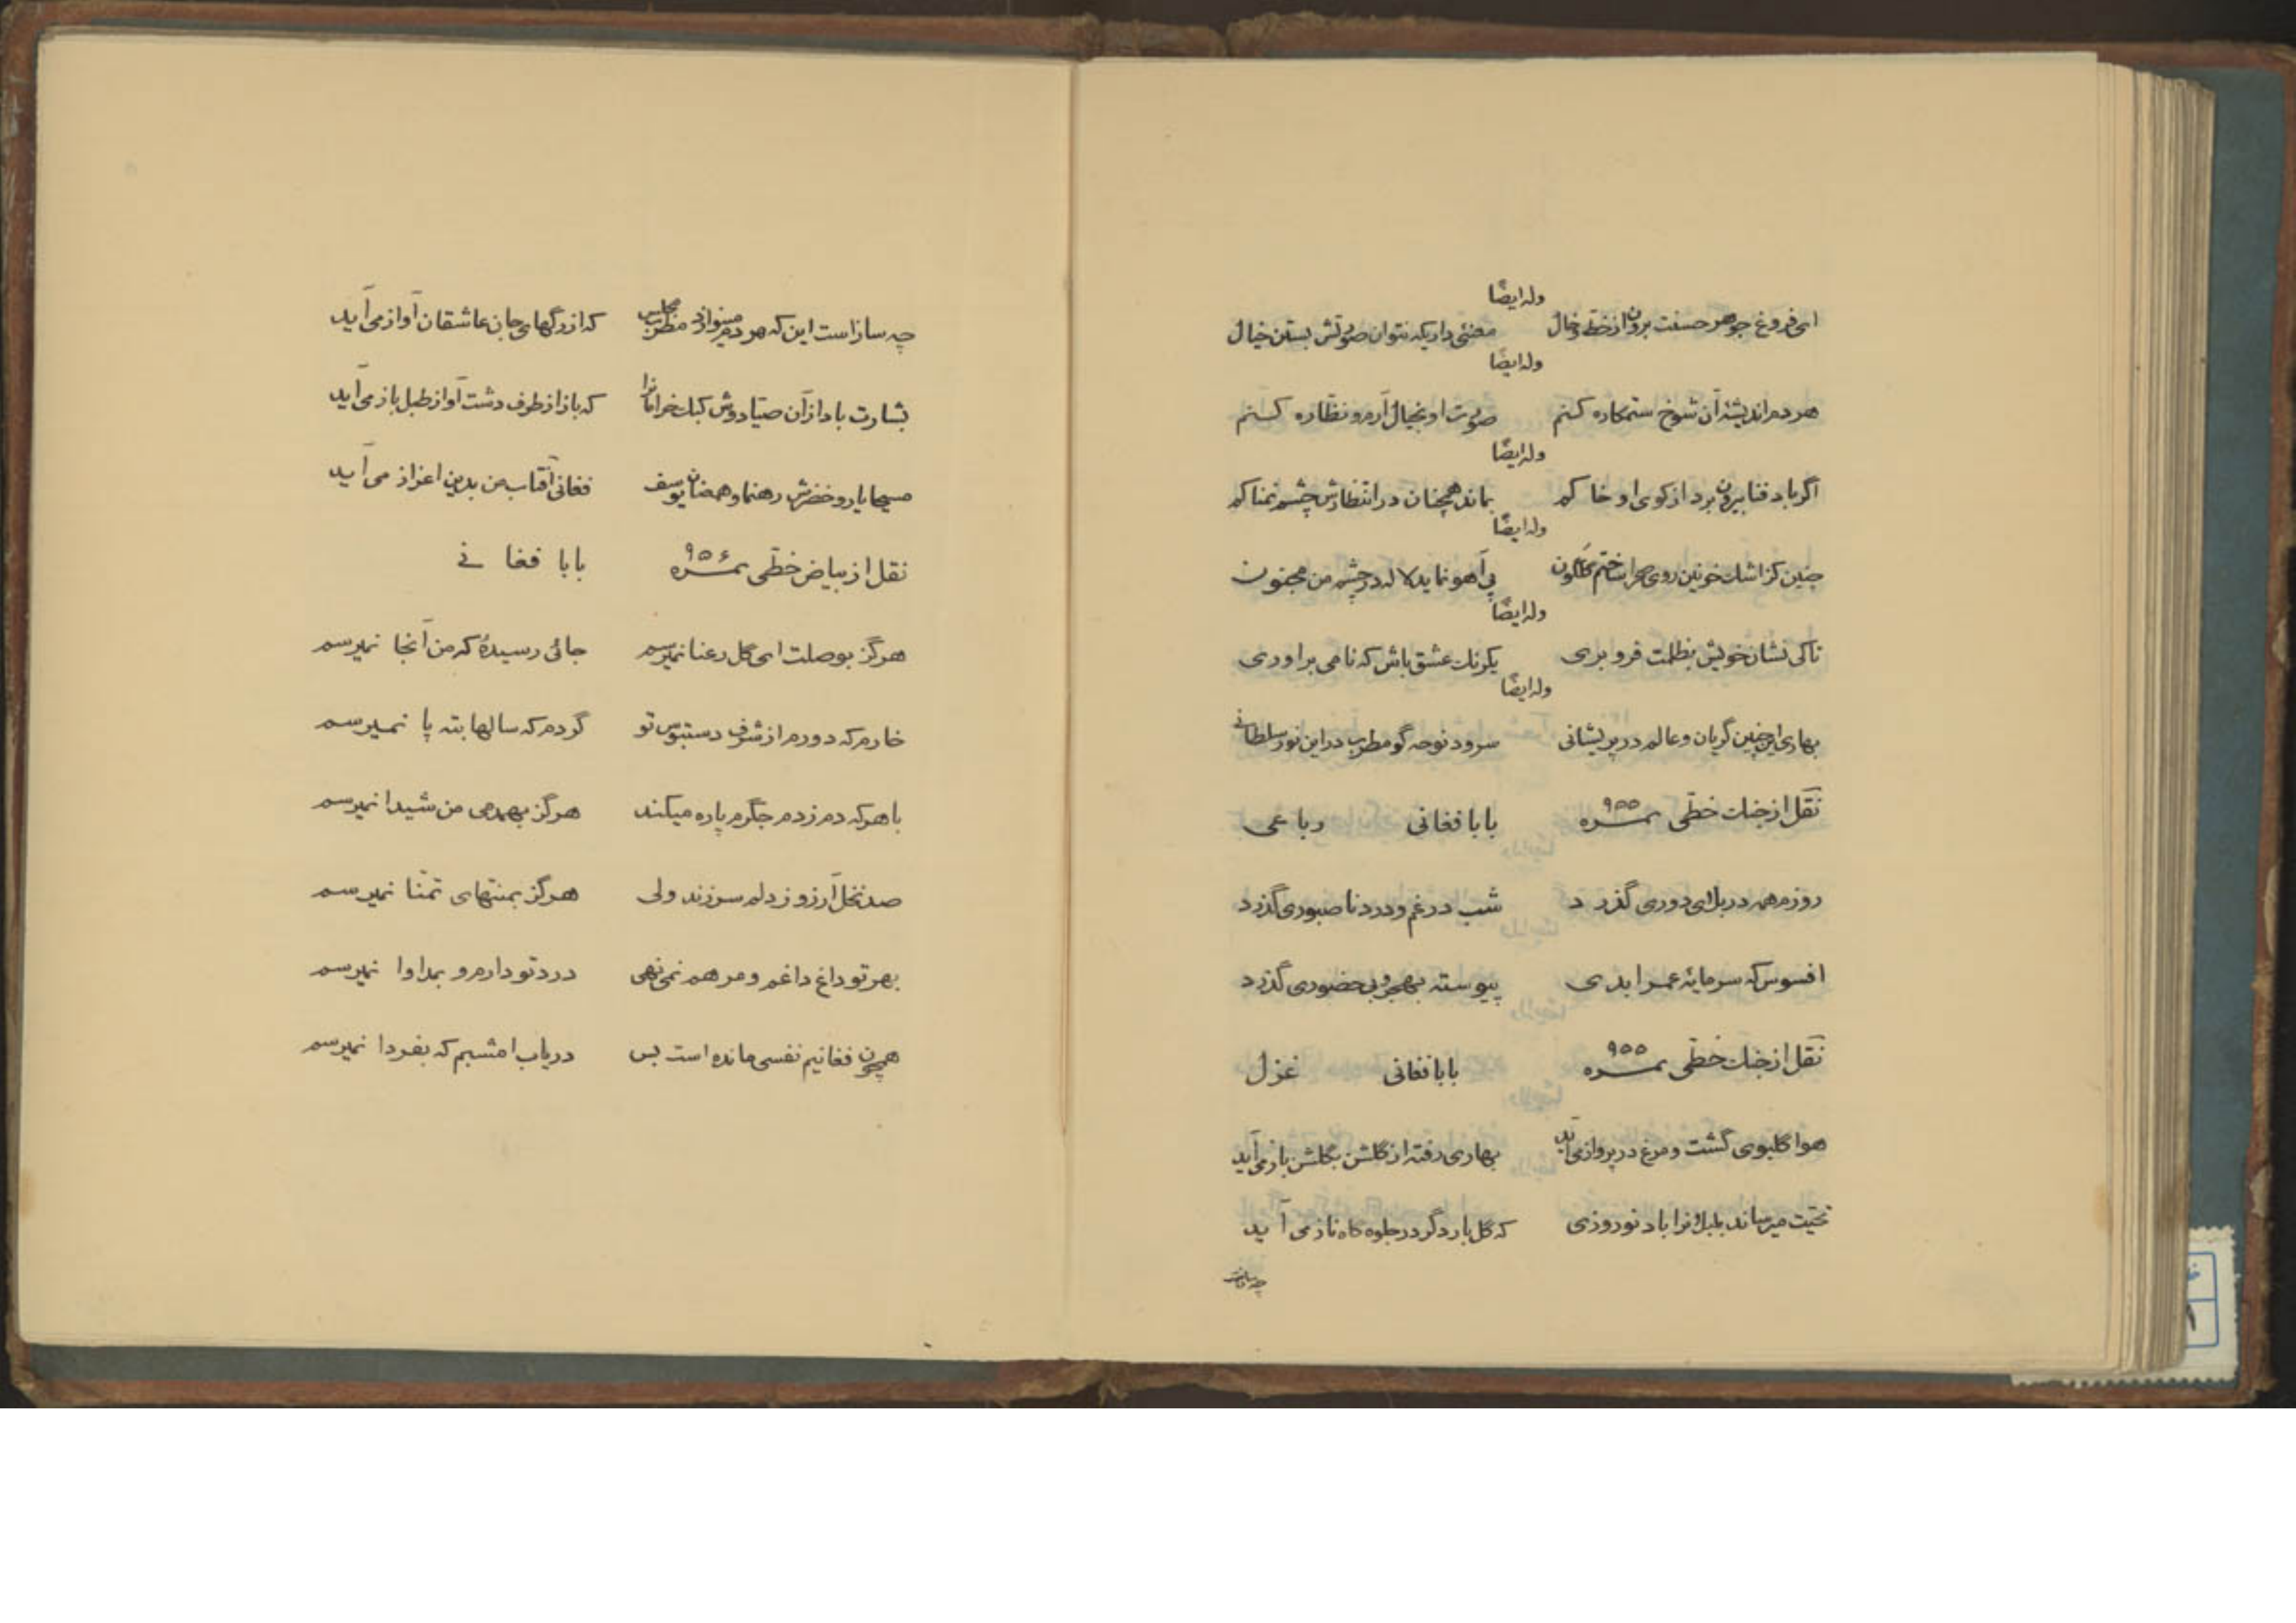 وله ایضًا
ای فروغ جوهر حسنت برون از خط و خال معنئی داریکه نتوان صورتش بستن خیال
وله ایضًا
هر دم اندیشهٔ آن شوخ ستمکاره کنم صورت او بخیال آرم و نظاره کنم
وله ایضًا
اگر باد فنا بیرون برد از کوی او خاکم بماند همچنان در انتظارش چشم نمناکم
وله ایضًا
چنین کز اشک خونین روی صحرا ساختم گلگون پی آهو نماید لاله در چشم من مجنون
وله ایضًا
تاکی نشان خویش بظلمت فرو بری یکرنک عشق باش که نامی براوری
وله ایضًا
بهاری این چنین گریان و عالم در پریشانی سرود نوحه گو مطرب در این نوز سلطانی
نقل از جنک خطی نمره ۹۵۵ بابا فغانی رباعی
روزم همه در بلای دوری گذرد شب در غم و درد نا صبوری گذرد
افسوس که سرمایهٔ عمر ابدی پیوسته بهجر و بی حضوری گذرد
نقل از جنک خطی نمره ۹۵۵ بابا فغانی غزل
هوا گلبوی گشت و مرغ در پرواز می آید بهاری رفته از گلشن بگلشن باز می آید
تحیت میرساند بلبلانرا باد نوروزی که گل بار دگر در جلوه گاه ناز می آید
چه ساز است
چه ساز است این که هر دم مینوازد مطرب مجلس که از رگهای جان عاشقان آواز می آید
بشارت باد از آن صیّاد وش کبک خرامانرا که باز از طرف دشت آواز طبل باز می آید
مسیحا یار و خضرش رهنما و همعنان یوسف فغانی آفتاب من بدین اعزاز می آید
نقل از بیاض خطّی نمره ۹۵۶ بابا فغانی
هرگز بوصلت ای گل رعنا نمیرسم جائی رسیدهٔ که من آنجا نمیرسم
خارم که دورم از شرف دستبوس تو گردم که سالها بته پا نمیرسم
با هر که دم زدم جگرم پاره میکند هرگز بهمدمی من شیدا نمیرسم
صد نخل آرزو ز دلم سر زند ولی هرگز بمنتهای تمنّا نمیرسم
بهر تو داغ داغم و مرهم نمی نهی درد تو دارم و بمداوا نمیرسم
همچون فغانیم نفسی مانده است بس دریاب امشبم که بفردا نمیرسم